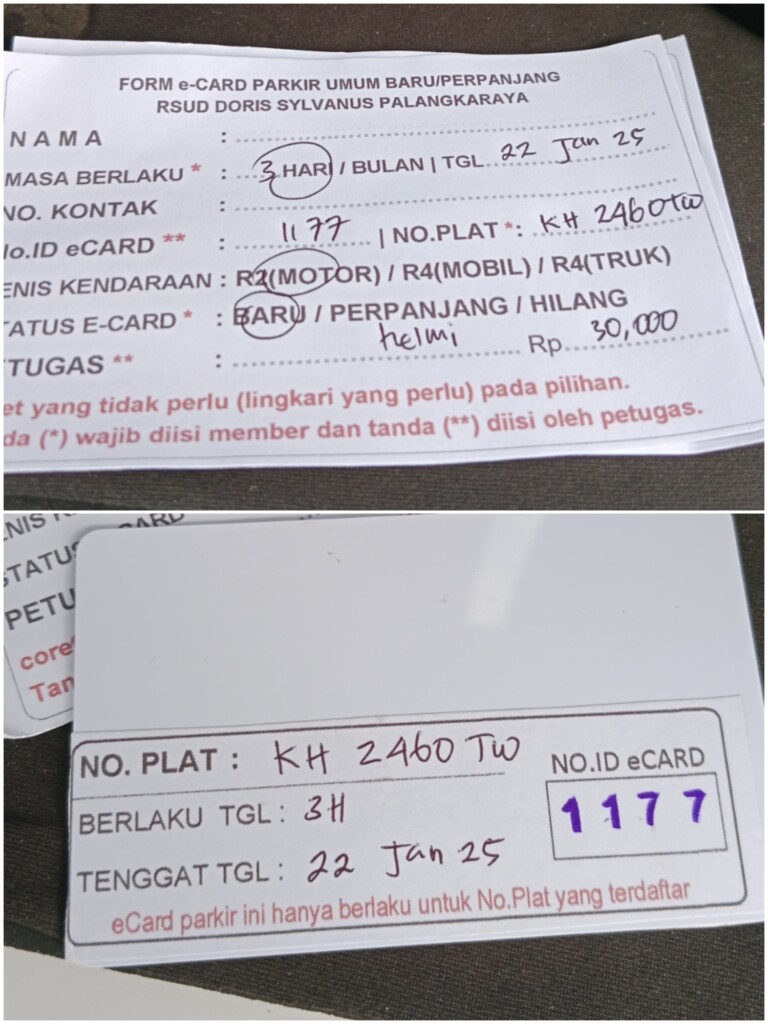 FORM e-CARD PARKIR UMUM BARU/PERPANJANG
RSUD DORIS SYLVANUS PALANGKARAYA
NAMA :
MASA BERLAKU * : 3 HARI / BULAN | TGL 22 Jan 25
NO. KONTAK :
No.ID eCARD ** : 1177 | NO.PLAT *: KH 2460 TW
ENIS KENDARAAN : R2(MOTOR) / R4(MOBIL) / R4(TRUK)
TATUS E-CARD * : BARU / PERPANJANG / HILANG
TUGAS ** : helmi Rp 30,000
et yang tidak perlu (lingkari yang perlu) pada pilihan.
da (*) wajib diisi member dan tanda (**) diisi oleh petugas.
ENIS K
STATUS CARD
PETU
coret
Tan
NO. PLAT : KH 2460 TW
NO.ID eCARD
1177
BERLAKU TGL : 3H
TENGGAT TGL : 22 Jan 25
eCard parkir ini hanya berlaku untuk No.Plat yang terdaftar